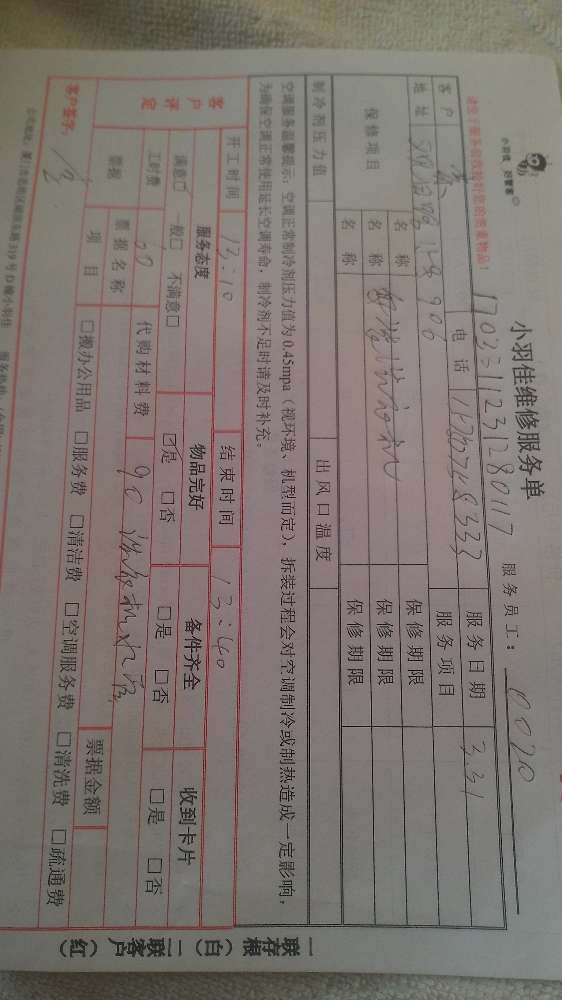 小羽佳 好管家
小羽佳维修服务单
请您了解多看收拾好您的贵重物品!
1703311231280117
服务员工:
客户
电话
服务日期 3.31
地址
906
服务项目
保修项目
名称
保修期限
名称
保修期限
名称
保修期限
制冷剂压力值
出风口温度
空调服务温馨提示:空调正常制冷剂压力值为0.45mpa(视环境、机型而定),拆装过程会对空调制冷或制热造成一定影响,
为确保空调正常使用延长空调寿命,制冷剂不足时请及时补充。
开工时间 13:10 结束时间 13:40
客户评定
服务态度 物品完好 备件齐全 收到卡片
满意□ 一般□ 不满意□ ☑是 □否 □是 □否 □是 □否
工时费 代购材料费 90
票据 票据名称 票据金额
项目 □搬办公用品 □服务费 □清洁费 □空调服务费 □清洗费 □疏通费
客户签字:
一联存根(白) 二联客户(红)